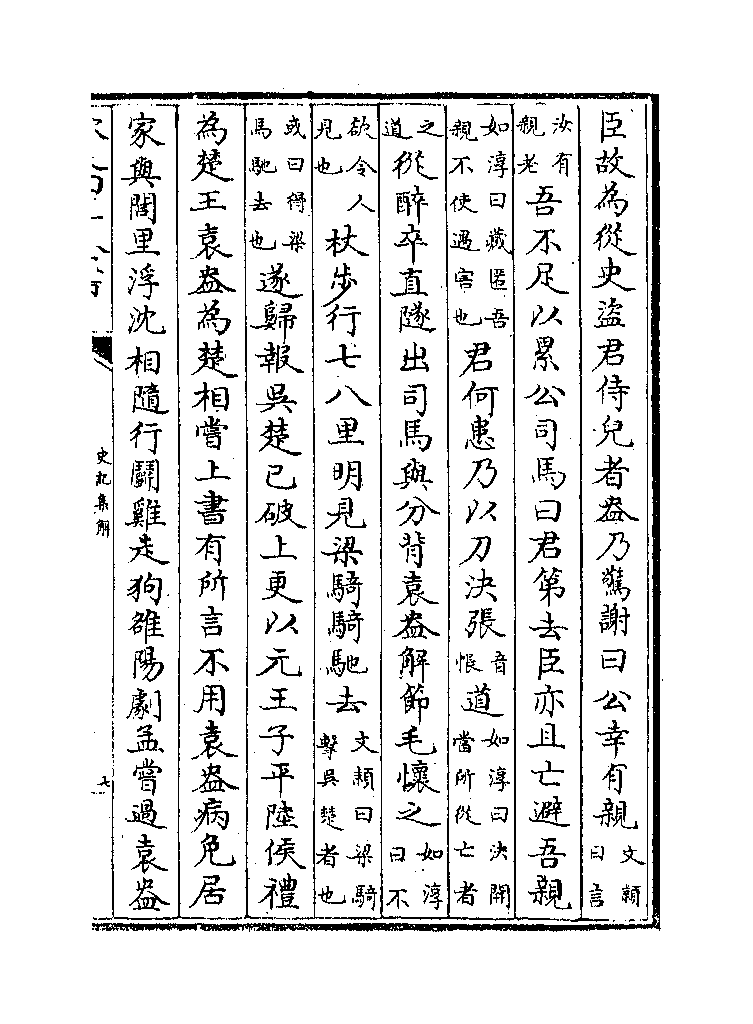 臣故為從史盜君侍兒者盎乃驚謝曰公幸有親文頴曰言
汝有親老吾不足以累公司馬曰君第去臣亦且亡避吾親
如淳曰藏匿吾親不使遇害也君何患乃以刀決張音悵道如淳曰決開當所從亡者
之道從醉卒直隧出司馬與分背袁盎解節毛懷之如淳曰不
欲令人見也杖步行七八里明見梁騎騎馳去文頴曰梁騎擊吳楚者也
或曰得梁馬馳去也遂歸報吳楚已破上更以元王子平陸侯禮
為楚王袁盎為楚相嘗上書有所言不用袁盎病免居
家與閭里浮沈相隨行鬭雞走狗雒陽劇孟嘗過袁盎
史記集解
七